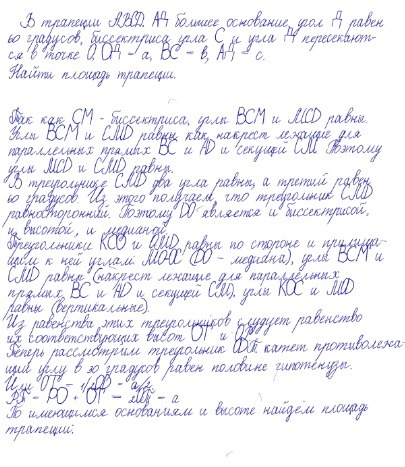 В трапеции ABCD АД большее основание, угол Д равен
60 градусов, биссектриса угла С и угла Д пересекают-
ся в точке О. ОД - а, ВС = в, АД = с.
Найти площадь трапеции.
Так как СМ - биссектриса, углы ВСМ и MCD равны.
Углы ВСМ и CMD равны как накрест лежащие для
параллельных прямых ВС и AD и секущей СМ. Поэтому
углы MCD и CMD равны.
В треугольнике CMD два угла равны, а третий равен
60 градусов. Из этого получаем, что треугольник CMD
равносторонний. Поэтому DO является и биссектрисой,
и высотой, и медианой.
Треугольники КСО и равны по стороне и прилежа-
щим к ней углам: МО=ОС (DO - медиана), углы ВСМ и
CMD равны (накрест лежащие для параллельных
прямых ВС и AD и секущей СМ), углы КОС и
равны (вертикальные).
Из равенства этих треугольников следует равенство
их соответствующих высот ОТ и
Теперь рассмотрим треугольник катет противолежа-
щий углу в 30 градусов равен половине гипотенузы.
Или ОТ = а/2
= РО + ОТ = = а
По имеющимся основаниям и высоте найдем площадь
трапеции.